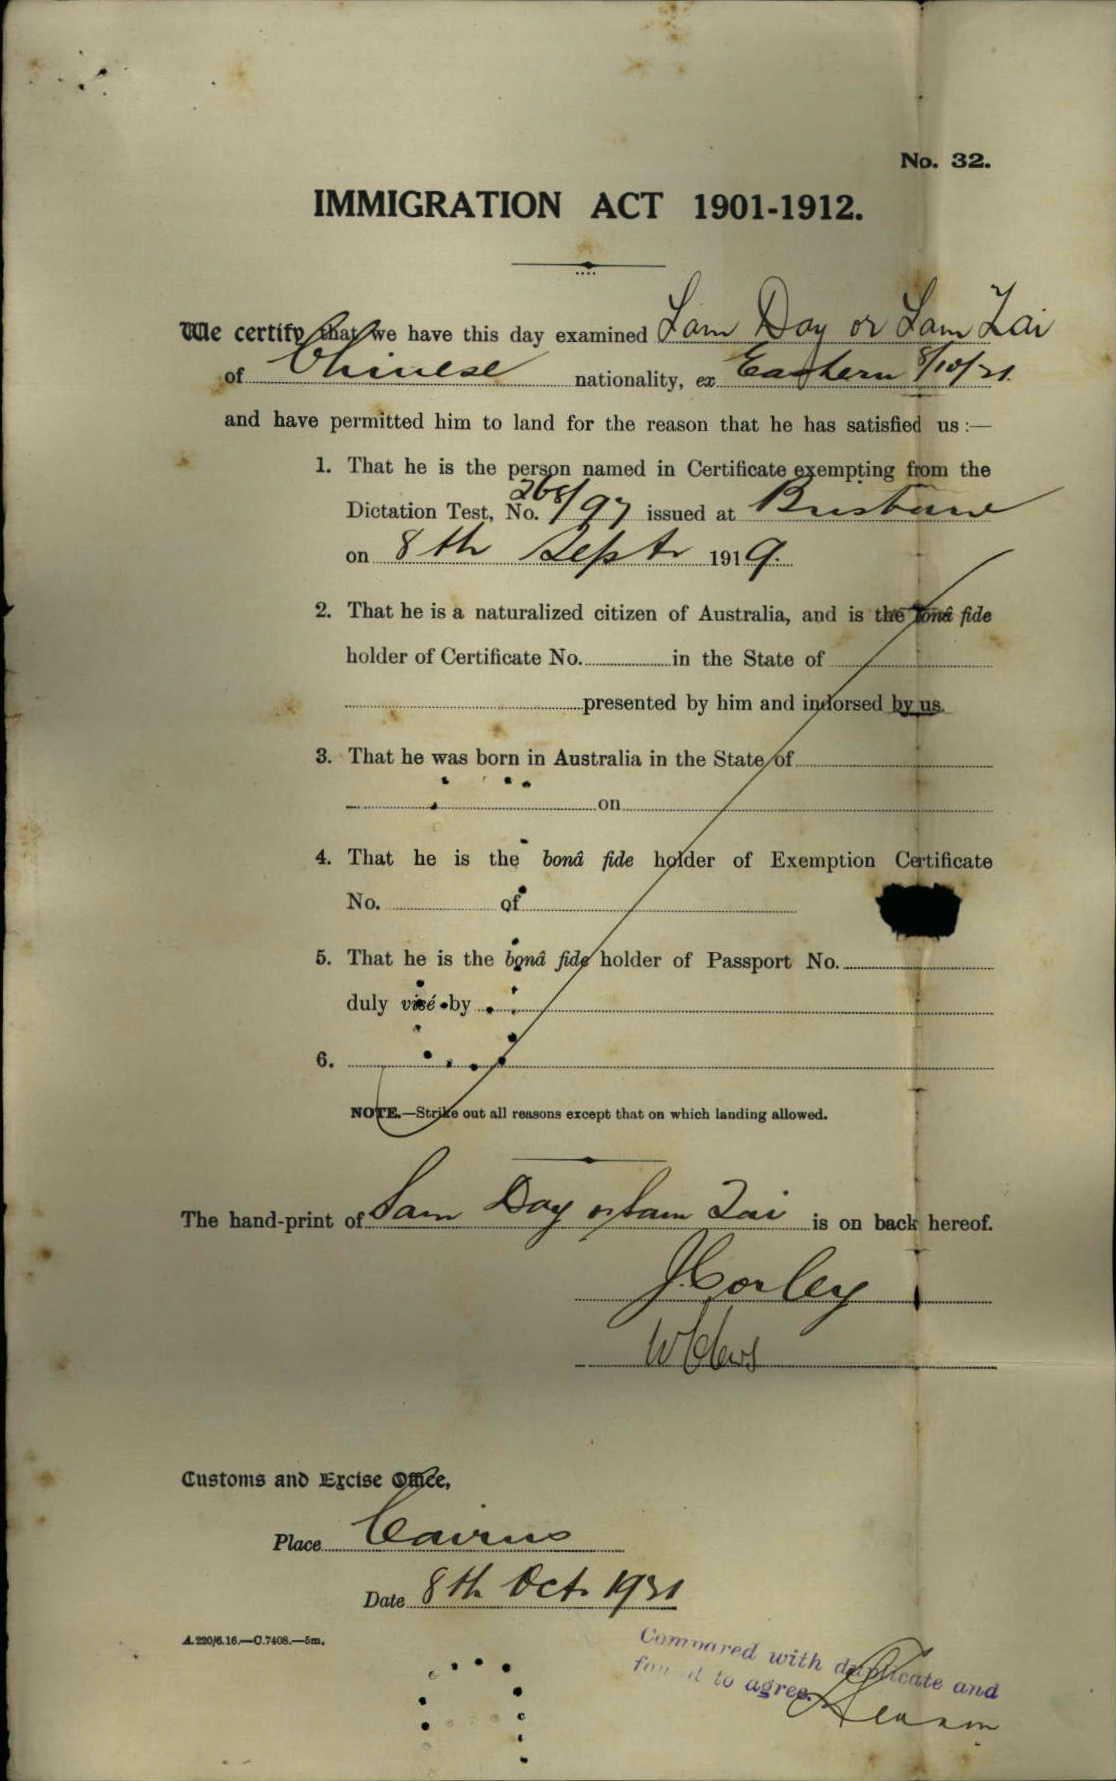 No. 32.
IMMIGRATION ACT 1901-1912.
We certify that we have this day examined Sam Day or Sam Tai
of Chinese nationality, ex Eastern 8/10/21.
and have permitted him to land for the reason that he has satisfied us :—
1. That he is the person named in Certificate exempting from the
Dictation Test, No. 268/97 issued at Brisbane
on 8th Septr 1919.
2. That he is a naturalized citizen of Australia, and is the bonâ fide
holder of Certificate No. in the State of
presented by him and indorsed by us.
3. That he was born in Australia in the State of
on
4. That he is the bonâ fide holder of Exemption Certificate
No. of
5. That he is the bonâ fide holder of Passport No.
duly visé by
6.
NOTE.—Strike out all reasons except that on which landing allowed.
The hand-print of Sam Day or Sam Tai is on back hereof.
J. Corley
Customs and Excise Office,
Place Cairns
Date 8th Oct. 1921
A.220/6.16.—C.7408.—5m.
Compared with duplicate and
found to agree.